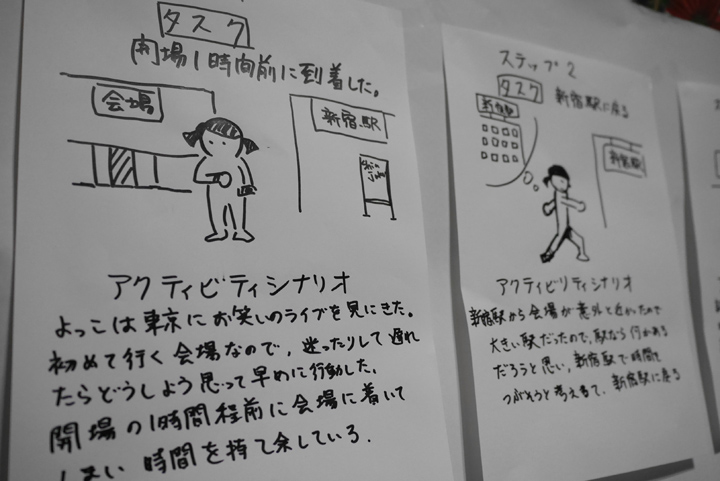 タスク
開場1時間前に到着した。
会場
新宿駅
Shin
juku
アクティビティシナリオ
よっこは東京にお笑いのライブを見にきた。
初めて行く会場なので、迷ったりして遅れ
たらどうしよう思って早めに行動した。
開場の1時間程前に会場に着いて
しまい 時間を持て余している.
ステップ2
タスク
新宿駅に戻る
新宿駅
新宿駅
アクティビリティシナリオ
新宿駅から会場が意外と近かったので
大きい駅だったので、駅なら行かある
だろうと思い、新宿駅で時間を
つぶそうと考えるて、新宿駅に戻る